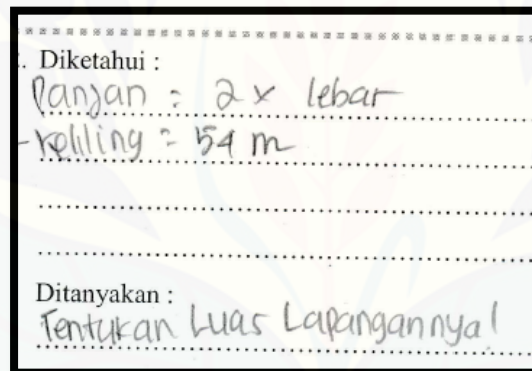 . Diketahui :
Panjan : 2 x lebar
- keliling = 54 m
Ditanyakan :
Tentukan Luas Lapangannya!